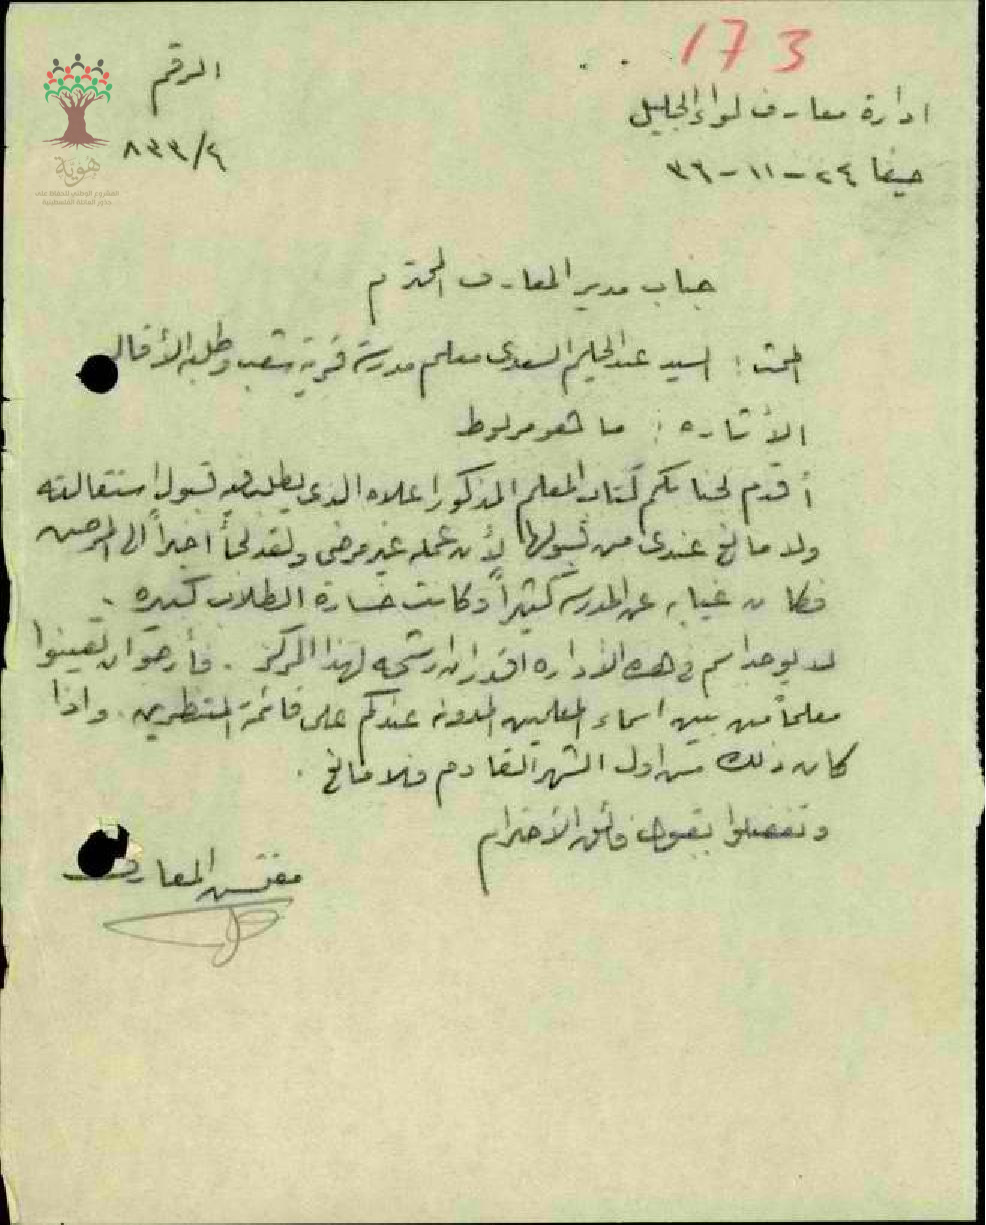 173
الرقم
ادارة معارف لواء الجليل
٨٣٣/٢
حيفا ٢٤-١١-٣٦
هوية
المشروع الوطني للحفاظ على
جذور العائلة الفلسطينية
جناب مدير المعارف المحترم
المبحث : السيد عبد الحليم السعدى معلم مدرسة قرية شعب وطلبه الأقاله
الأشاره : ما هو مربوط
أقدم لجنابكم كتاب المعلم المذكور اعلاه الذى يطلب فيه قبول استقالته
ولا مانع عندى من قبولها لأن عمله غير مرضى ولقد لجأ اخيراً الى المرض
فكان غيابه عن المدرسه كثيراً وكانت خسارة الطلاب كبيره .
لا يوجد اسم في هذه الأداره اقدر ان ارشحه لهذا المركز . فأرجو ان تعينوا
معلماً من بين اسماء المعلمين المدونه عندكم على قائمة المنتظرين . واذا
كان ذلك من اول الشهر القادم فلا مانع .
وتفضلوا بقبول فائق الأحترام
مفتش المعارف